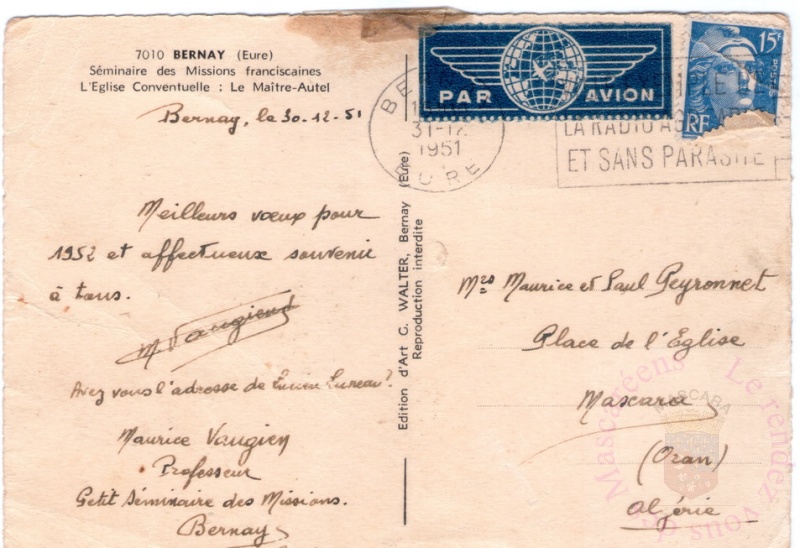 7010 BERNAY (Eure)
Séminaire des Missions franciscaines
L'Eglise Conventuelle : Le Maître-Autel
Bernay, le 30-12-51
Meilleurs vœux pour
1952 et affectueux souvenir
à tous.
M Vaugien
Avez vous l'adresse de Lucien Luneau?
Maurice Vaugien
Professeur
Petit Séminaire des Missions.
Bernay
Edition d'Art G. WALTER, Bernay (Eure)
Reproduction interdite
PAR AVION
15F
POSTES
RF
31-12
1951
EURE
LA RADIO
ET SANS PARASITE
Mrs Maurice et Paul Peyronnet
Place de l'Eglise
Mascara
(Oran)
Algérie
Le rendez vous des Mascaréens
MASCARA